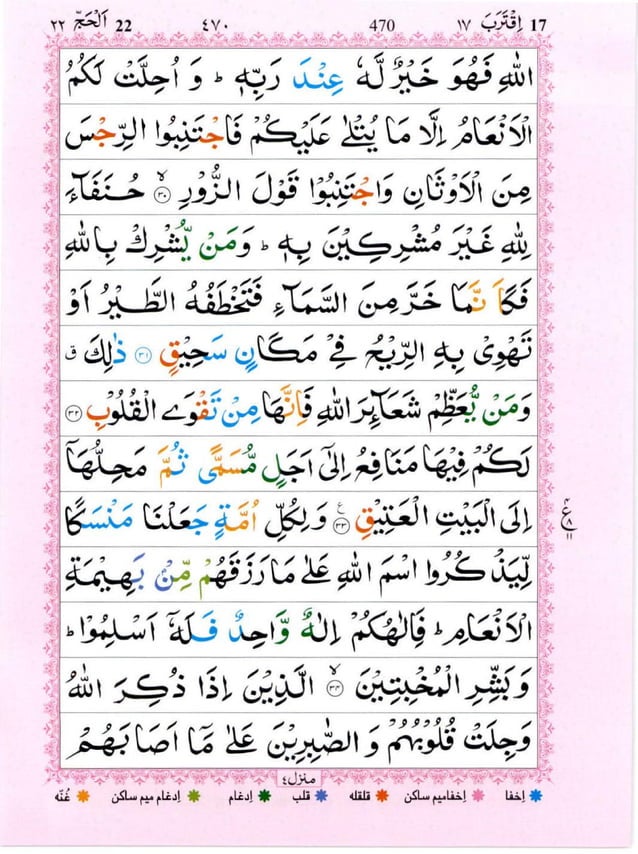 اِقْتَرَبَ 17 ١٧ 470 ٤٧٠ اَلْحَجّ 22 ٢٢
اللّٰهِ فَهُوَ خَيْرٌ لَّهٗ عِنْدَ رَبِّهٖ ؕ وَ اُحِلَّتْ لَكُمُ
الْاَنْعَامُ اِلَّا مَا يُتْلٰى عَلَيْكُمْ فَاجْتَنِبُوا الرِّجْسَ
مِنَ الْاَوْثَانِ وَاجْتَنِبُوْا قَوْلَ الزُّوْرِ ۙ‏﴿۳۰﴾ حُنَفَآءَ
لِلّٰهِ غَيْرَ مُشْرِكِيْنَ بِهٖ ؕ وَمَنْ يُّشْرِكْ بِاللّٰهِ
فَكَاَنَّمَا خَرَّ مِنَ السَّمَآءِ فَتَخْطَفُهُ الطَّيْرُ اَوْ
تَهْوِىْ بِهِ الرِّيْحُ فِىْ مَكَانٍ سَحِيْقٍ ﴿۳۱﴾ ذٰلِكَ ق
وَمَنْ يُّعَظِّمْ شَعَآئِرَ اللّٰهِ فَاِنَّهَا مِنْ تَقْوَى الْقُلُوْبِ ﴿۳۲﴾
لَكُمْ فِيْهَا مَنَافِعُ اِلٰٓى اَجَلٍ مُّسَمًّى ثُمَّ مَحِلُّهَاۤ
اِلَى الْبَيْتِ الْعَتِيْقِ ﴿۳۳﴾ ع وَلِكُلِّ اُمَّةٍ جَعَلْنَا مَنْسَكًا
لِّيَذْكُرُوا اسْمَ اللّٰهِ عَلٰى مَا رَزَقَهُمْ مِّنْ بَهِيْمَةِ
الْاَنْعَامِ ؕ فَاِلٰهُكُمْ اِلٰهٌ وَّاحِدٌ فَلَهٗۤ اَسْلِمُوْا ؕ
وَبَشِّرِ الْمُخْبِتِيْنَ ۙ‏﴿۳۴﴾ الَّذِيْنَ اِذَا ذُكِرَ اللّٰهُ
وَجِلَتْ قُلُوْبُهُمْ وَ الصّٰبِرِيْنَ عَلٰى مَاۤ اَصَابَهُمْ
منزل٤
اِخفا اِخفامیم ساکن قلقله قلب اِدغام اِدغام میم ساکن غُنّه